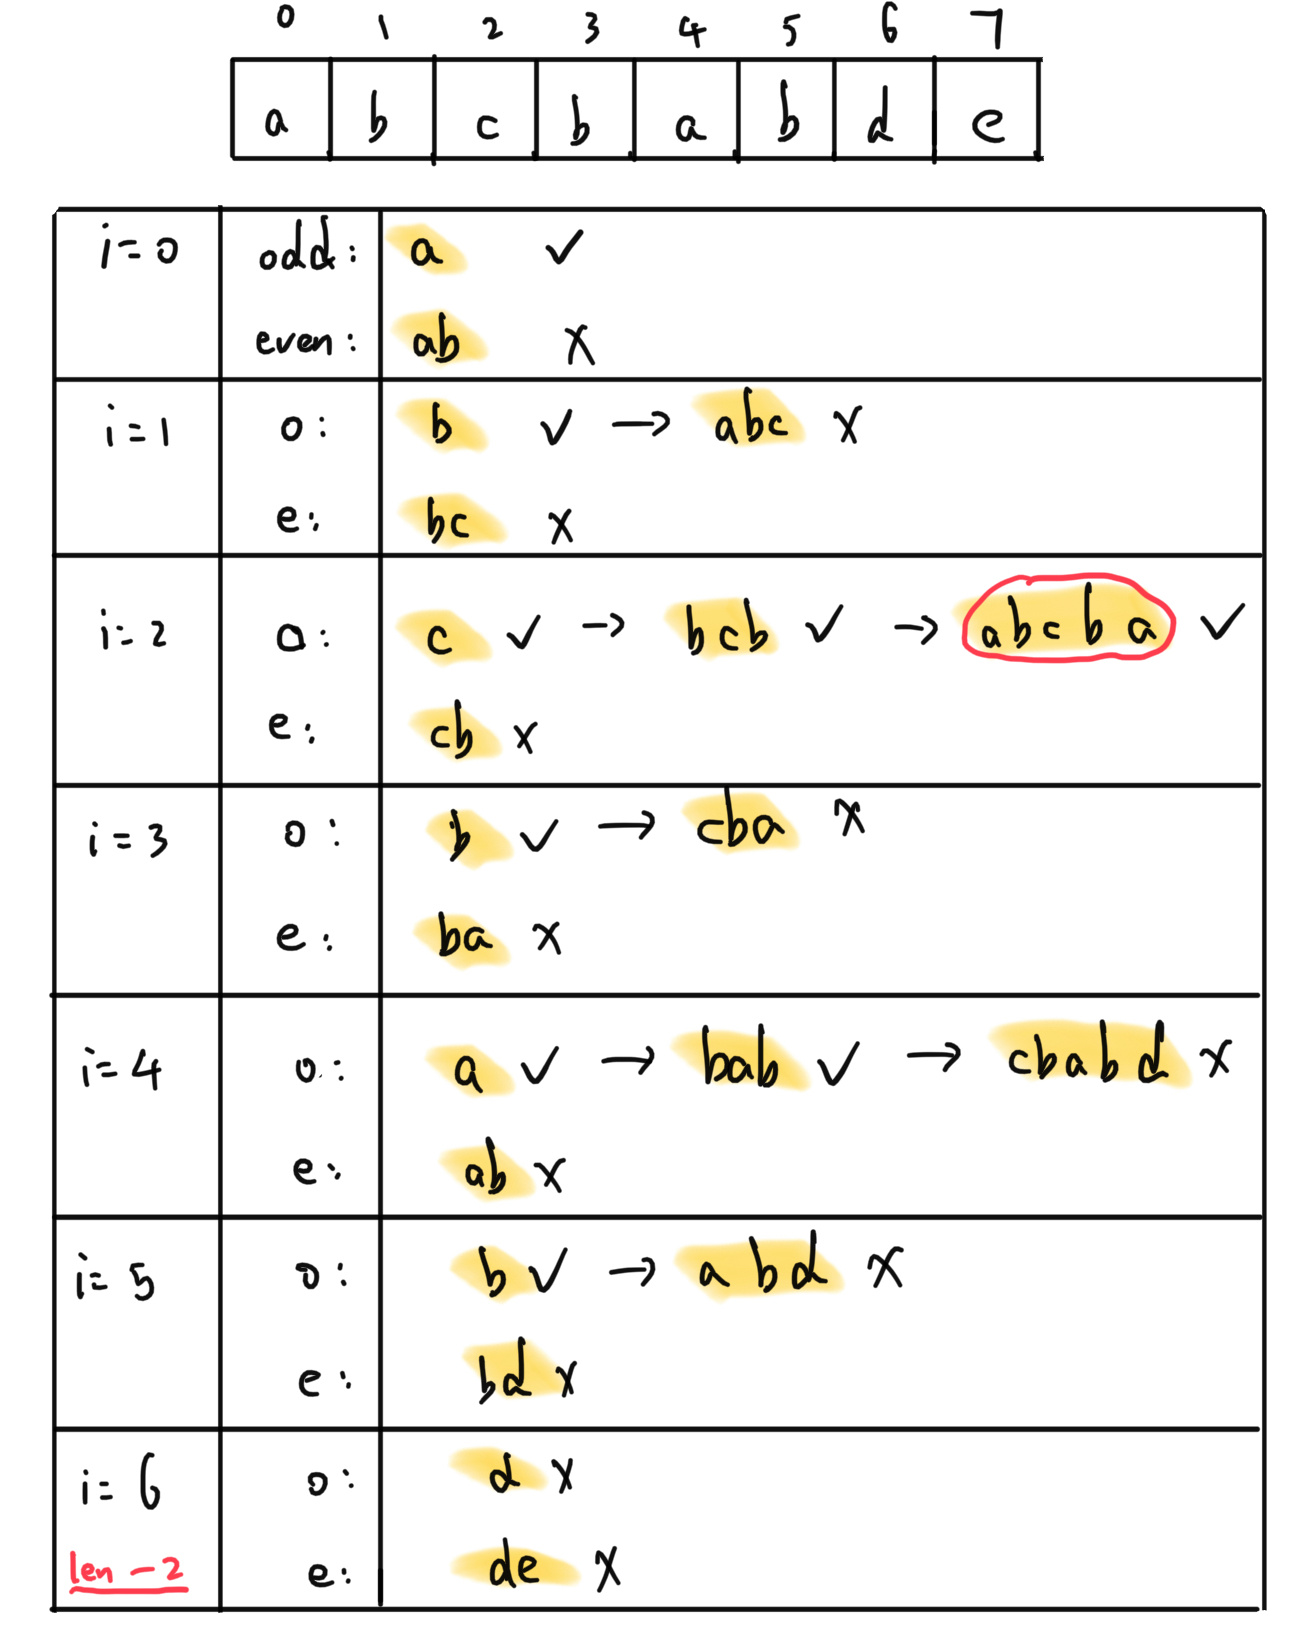 0 1 2 3 4 5 6 7
a b c b a b d e
i=0 odd: a ✓
even: ab x
i=1 o: b ✓ → abc x
e: bc x
i=2 o: c ✓ → bcb ✓ → abcba ✓
e: cb x
i=3 o: b ✓ → cba x
e: ba x
i=4 o: a ✓ → bab ✓ → cbabd x
e: ab x
i=5 o: b ✓ → abd x
e: bd x
i=6 o: d x
len-2 e: de x